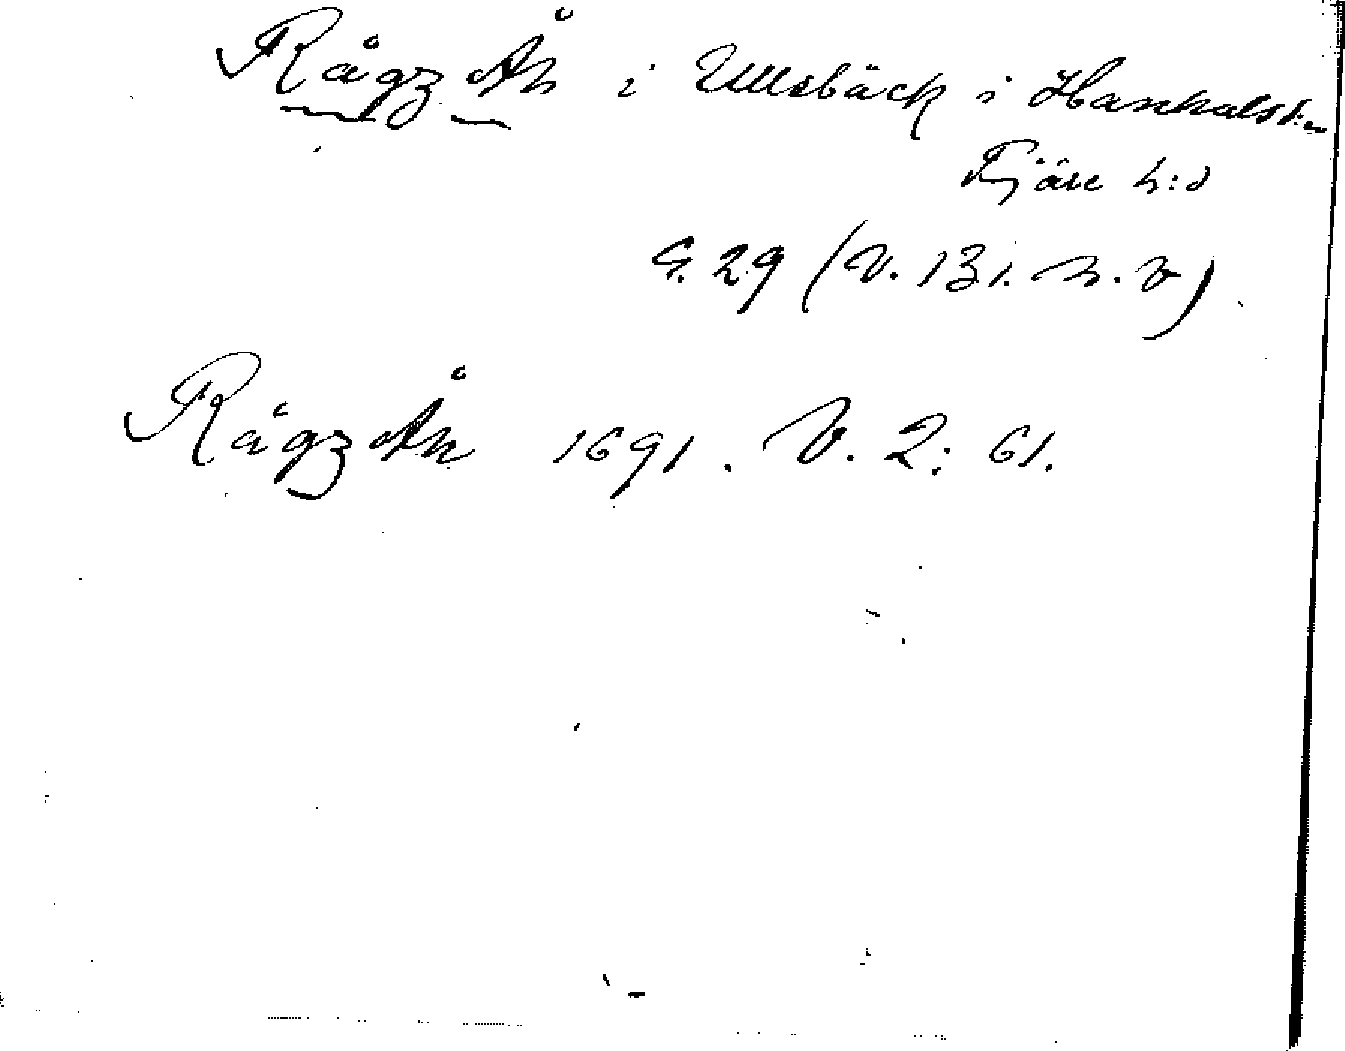 Rågz Åh i Ullsbäck i Hanhals s:n
Fjäre h:d
G. 29 (V. 131. n. v)
Rågz Åk 1691. V. 2: 61.